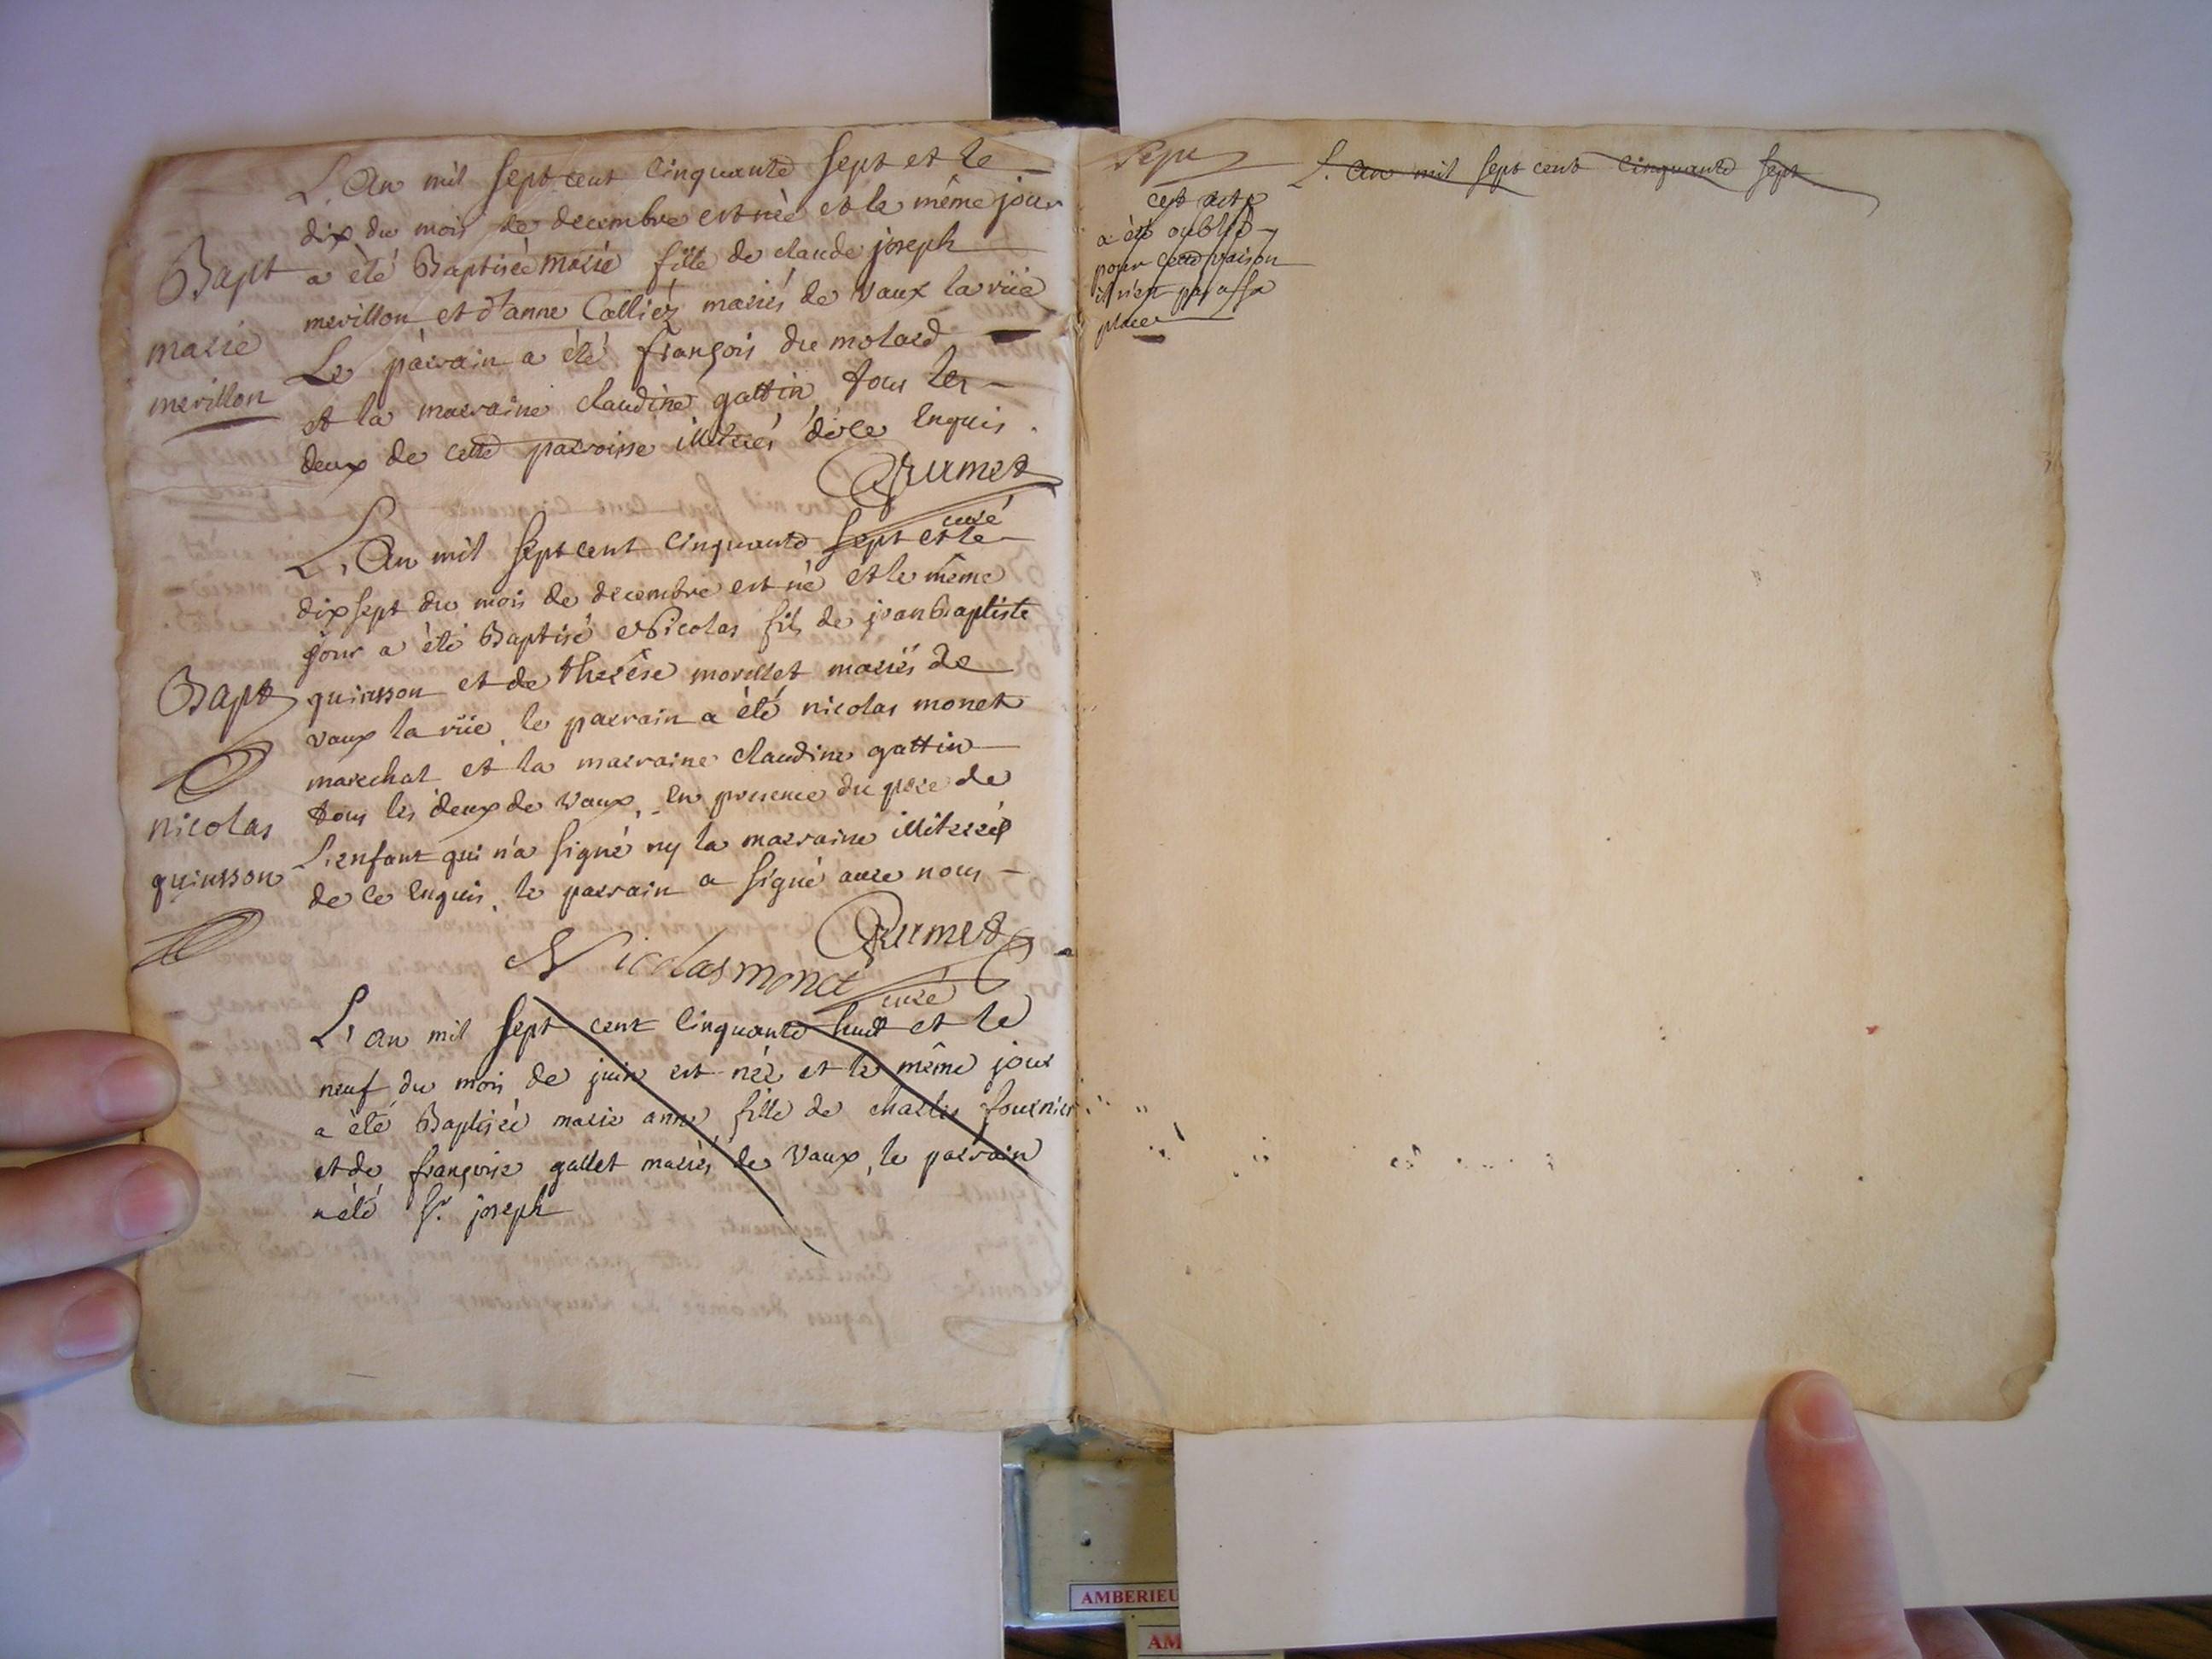 L'An mil sept cent cinquante sept et le
dix du mois de decembre est née et le même jour
a été Baptisée marie fille de claude joseph
merillon et d'anne Calliez mariés de vaux la rüe
Le parrain a été françois du molard
et la marraine claudine gattin tous les
deux de cette parroisse illiterés de ce enquis.
Bapt
marie
merillon
Grumet
curé
L'An mil sept cent cinquante sept et le
dix sept du mois de decembre est né et le même
jour a été Baptisé Nicolas fils de jean Baptiste
quinsson et de therèse morellet mariés de
vaux la rüe, le parrain a été nicolas monet
marechal et la marraine claudine gattin
tous les deux de vaux, en presence du pere de
L'enfant qui n'a signé ny la marraine illiterés
de ce enquis, le parrain a signé avec nous
Bapt
nicolas
quinsson
Grumet
Nicolas monet
curé
L'an mil sept cent cinquante huit et le
neuf du mois de juin est née et le même jour
a été Baptisée marie anne fille de charles fournier
et de françoise gallet mariés de vaux, le parrain
a été Sr. joseph
Sept
L'an mil sept cent cinquante sept
cest acte
a été oublié
pour cette raison
il n'est pas a sa
place
AMBERIEU
AM